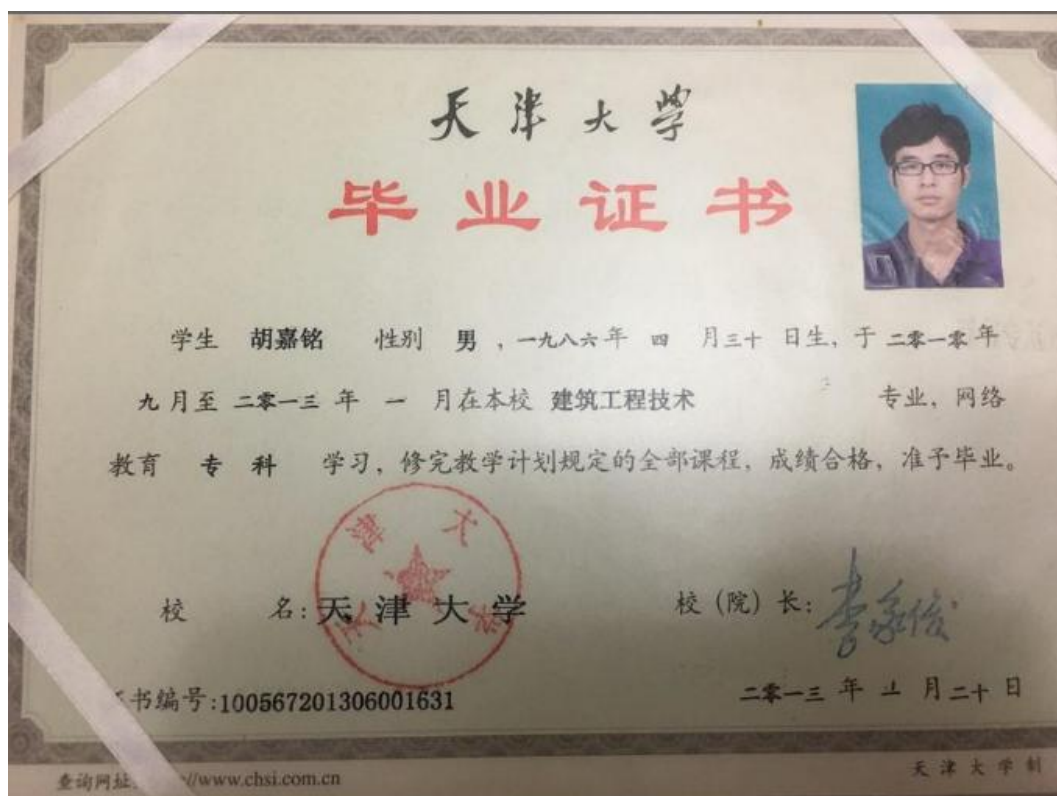 天津大学
毕业证书
学生 胡嘉铭 性别 男 ，一九八六年 四 月三十 日生，于 二零一零年
九月至 二零一三 年 一 月在本校 建筑工程技术 专业，网络
教育 专 科 学习，修完教学计划规定的全部课程，成绩合格，准予毕业。
天津大学
校 名:天津大学
校（院）长: 李家俊
书编号:100567201306001631
二零一三 年 月二十 日
查询网址 //www.chsi.com.cn
天津大学制